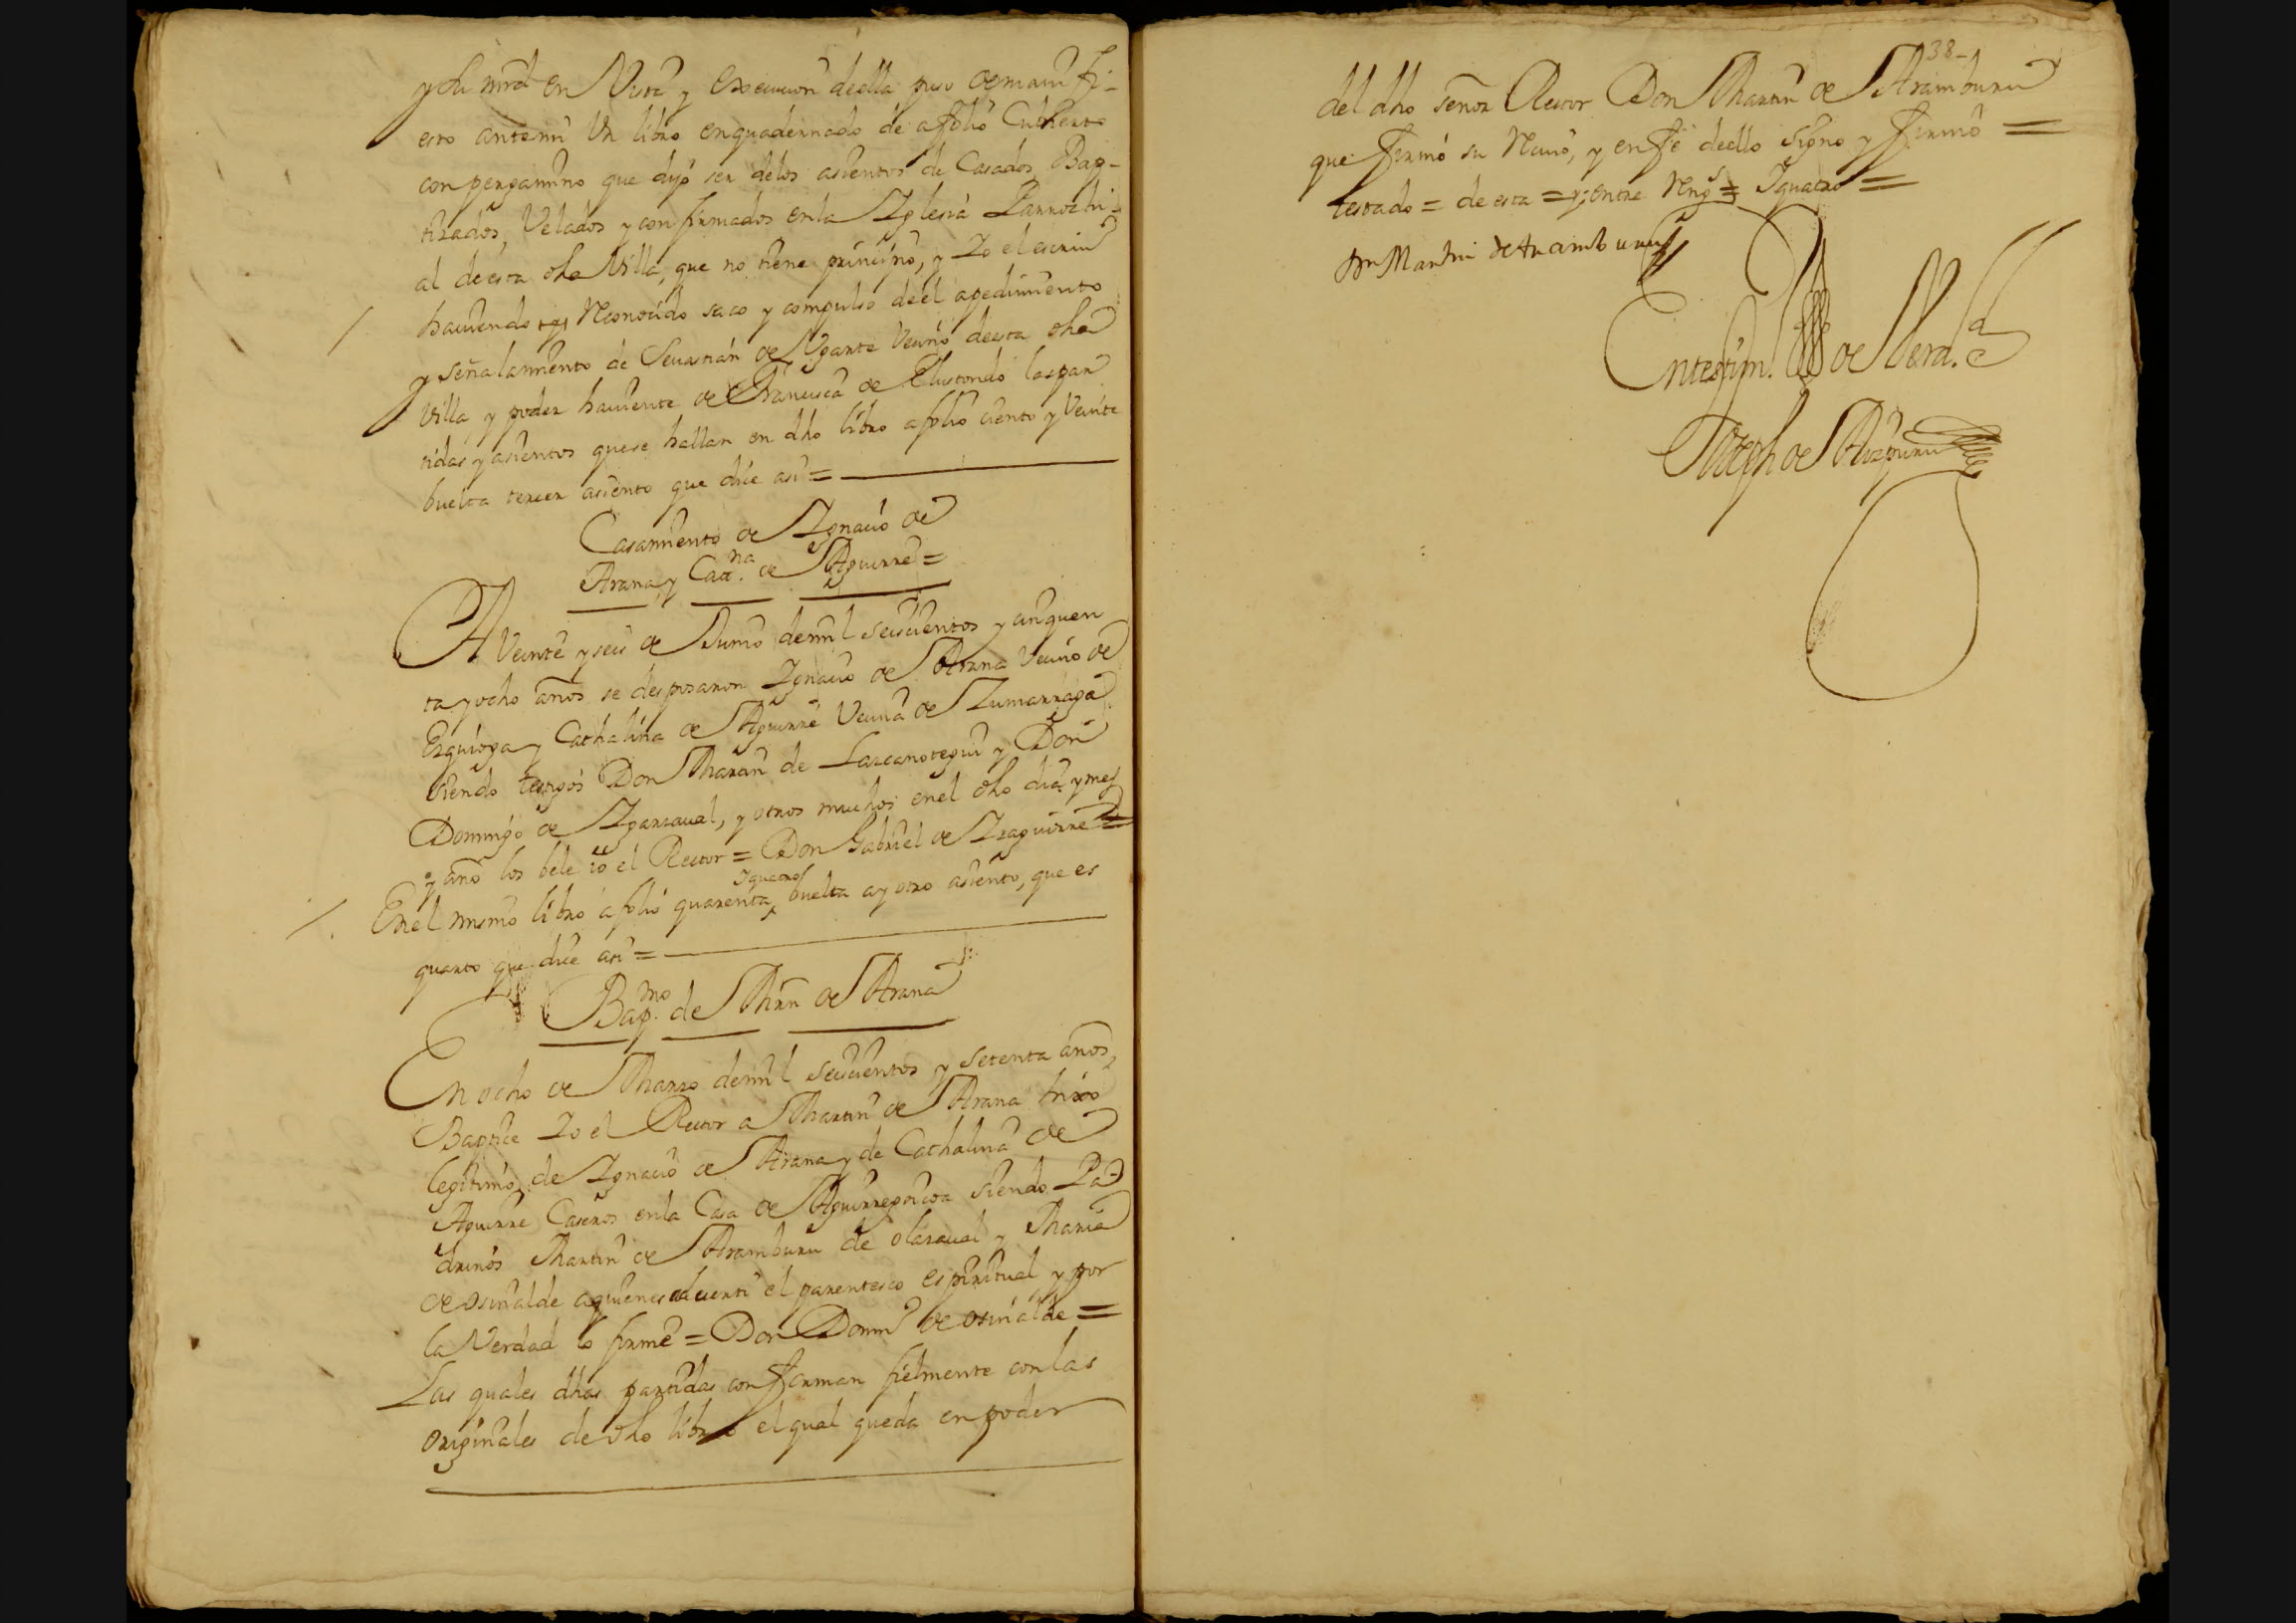 y Su mrd en Vista y execucion deella puso demanifi-
esto antemi Un libro enquadernado de a folio Cubierto
con pergamino que dijo ser delos asientos de Casados, Bap-
tizados, Velados y confirmados enla Yglesia Parrochi-
al de esta dha Villa, que no tiene principio, y Yo el escriuº
hauiendo Reconocido saco y compulso deel apedimiento
y señalamiento de Seuastian de Ugarte Vecino deesta dha
Villa y poder hauiente de Francisca de Elustondo las par
tidas y asientos quese hallan en dho libro afolio ciento y Veinte
buelta tercer asiento que dice asi =
Casamiento de Ygnacio de
Arana y Catt.na de Aguirre =
A Veinte y seis de Junio demil Seiscientos y cinquen
ta y ocho años se desposaron Ygnacio de Arana Vecino de
Ezquioga y Cathalina de Aguirre Vecina de Zumarraga
siendo testigos Don Martin de Lazcanotegui y Don
Domingo de Ygarzaual, y otros muchos enel dho dia y mes
y año los bele io el Rector = Don Gabriel de Yzaguirre =
Enel mismo libro afolio quarenta yquatro buelta ay otro asiento, que es
quarto que dice asi =
Bap.mo de Mrn de Arana
En ocho de Marzo demil seiscientos y setenta años,
Baptice Yo el Rector a Martin de Arana hixo
legitimo de Ygnacio de Arana y de Cathalina de
Aguirre Caseros enla Casa de Aguirregoicoa siendo Pa-
drinos Martin de Aramburu de olazaual y Maria
de osinalde aquienes aduerti el parentesco espiritual y por
la Verdad lo firmé = Don Domº de osinalde =
Las quales dhas partidas conforman fielmente conlas
originales de dho libro el qual queda en poder
38-
del dho señor Rector Don Martin de Aramburu
que firmó su Reciuo, y enfé deello signo y firmo =
testado = de esta = y; entre Rengs = Yquatro =
Dn Martin de Aramburu
Entestim.º de Verd.d
Joseph de Aizpuru